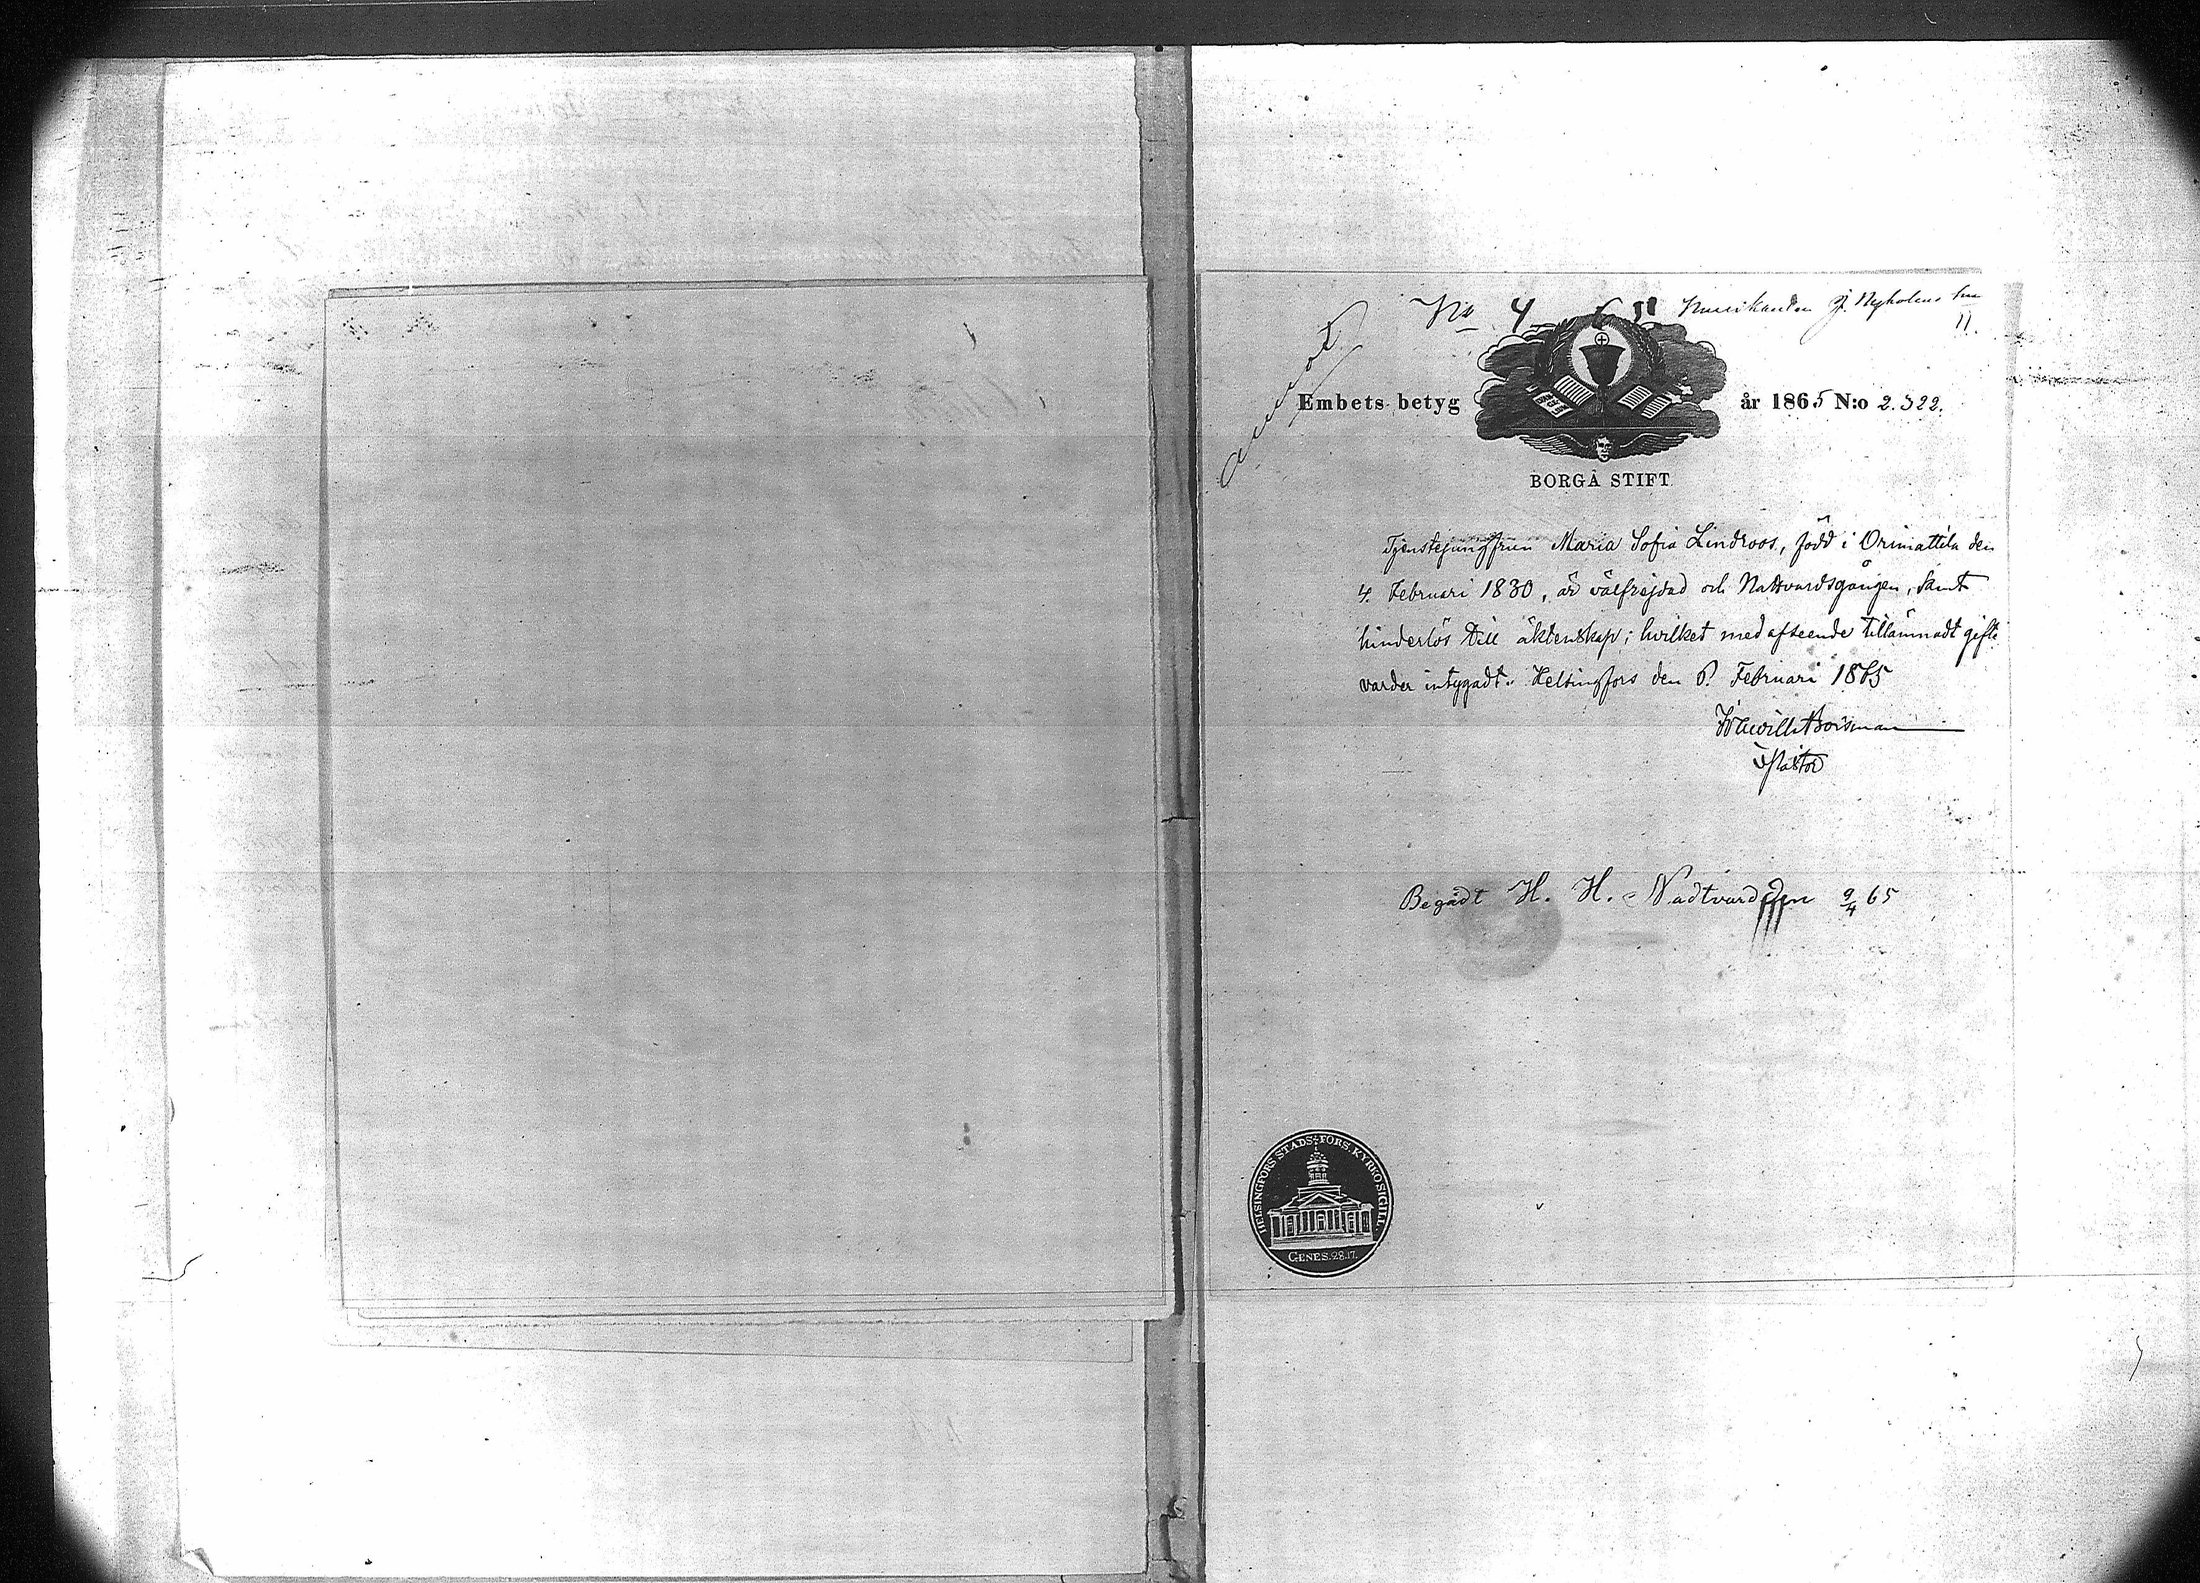 No 4 Musikanten J. Nyholms
11.
Embets betyg år 1865 N:o 2.322.
BORGÅ STIFT
Tjenstejungfrun Maria Sofia Lindroos, född i Orimattila den
4. Februari 1830, är välfrejdad och Nattvardsgången, samt
hinderlös till äktenskap; hvilket med afseende tillämnadt gifte
varder intygadt. Helsingfors den 6. Februari 1865
v Pastor
Begådt H. H. Nadtvarden 9/4 65
HELSINGFORS STADS-FÖRS. KYRKOSIGILL.
GENES. 28. 17.